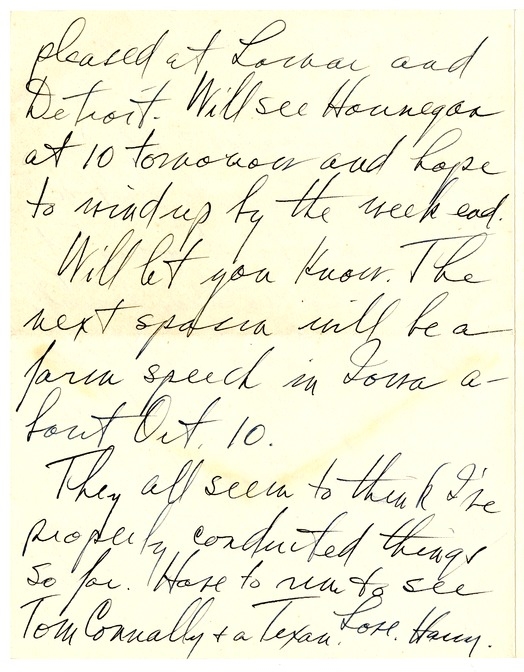 pleased at Lamar and
Detroit. Will see Hannegan
at 10 tomorrow and hope
to wind up by the week end.
Will let you know. The
next spasm will be a
farm speech in Iowa a-
bout Oct. 10.
They all seem to think I've
properly conducted things
so far. Have to run to see
Tom Connally + a Texan. Love. Harry.